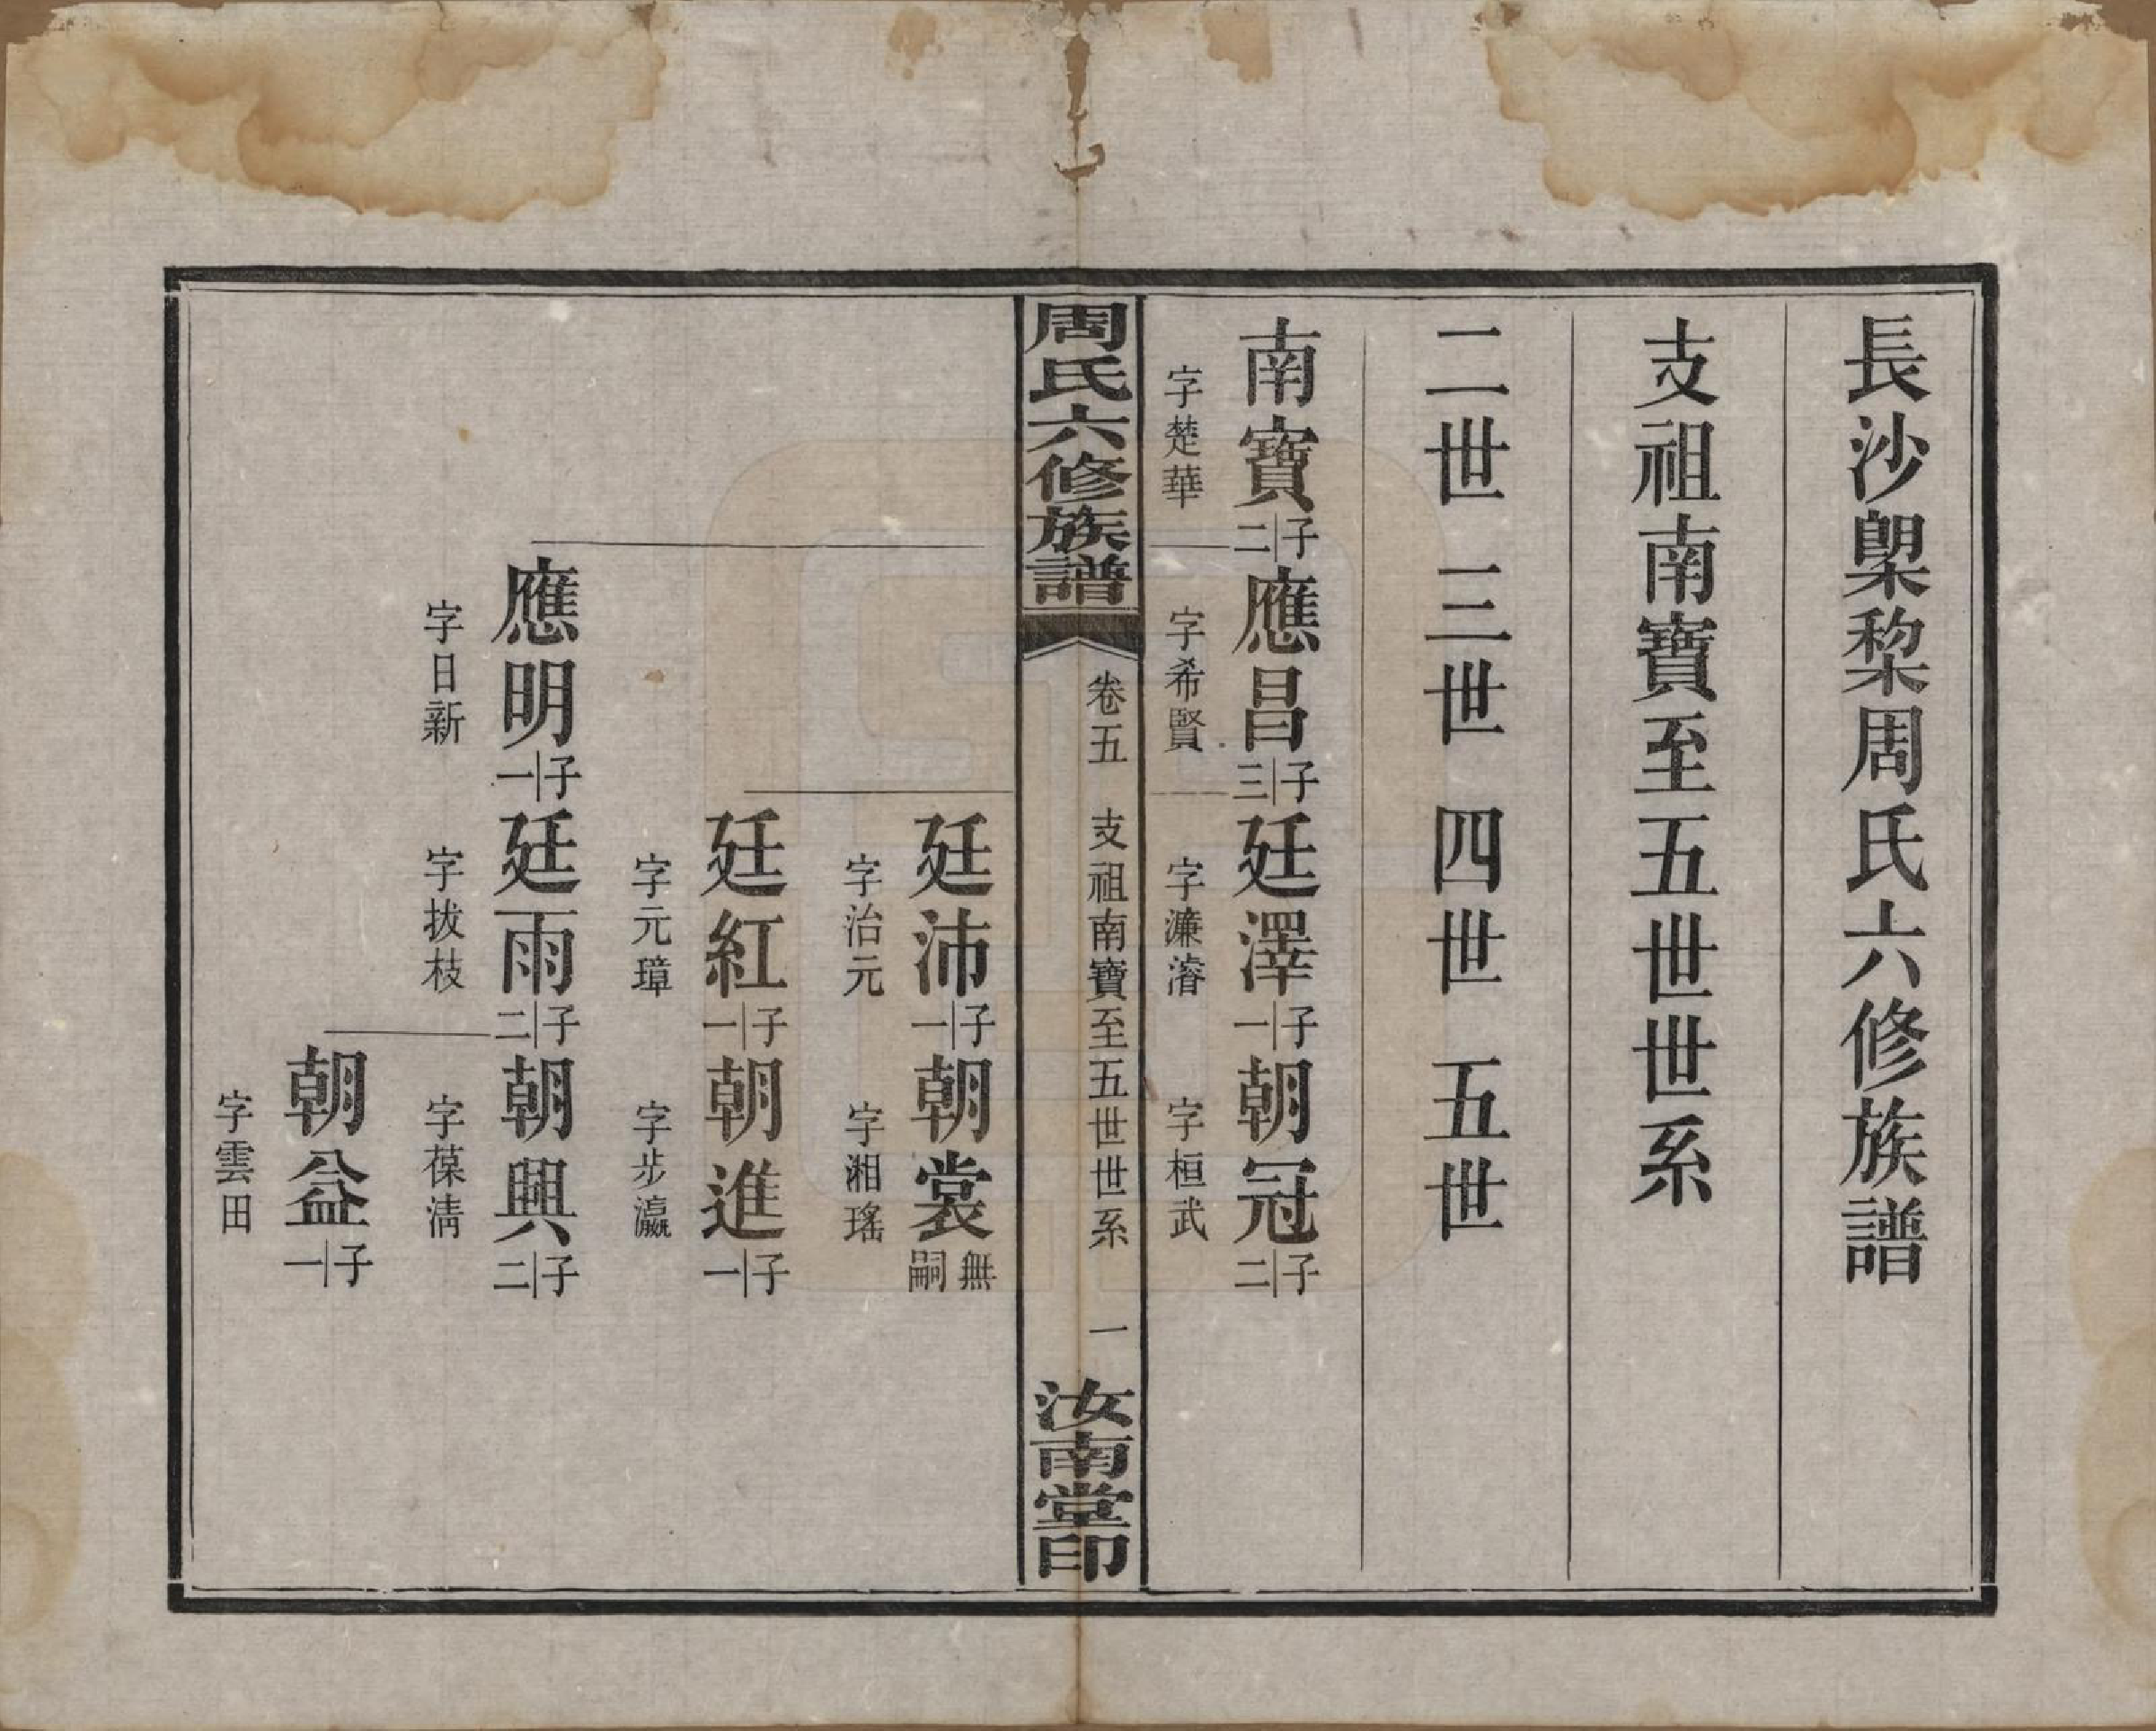 長沙㮚棃周氏六修族譜
支祖南寶至五世世系
二世 三世 四世 五世
南寶 子二 應昌 子三 廷澤 子一 朝冠 子二
字楚華 字希賢 字濂濬 字桓武
周氏六修族譜 卷五 支祖南寶至五世世系 一 汝南堂印
廷沛 子一 朝裳 無嗣
字治元 字湘瑤
廷紅 子一 朝進 子一
字元璋 字步瀛
應明 子一 廷雨 子二 朝興 子二
字日新 字拔枝 字葆淸
朝益 子一
字雲田